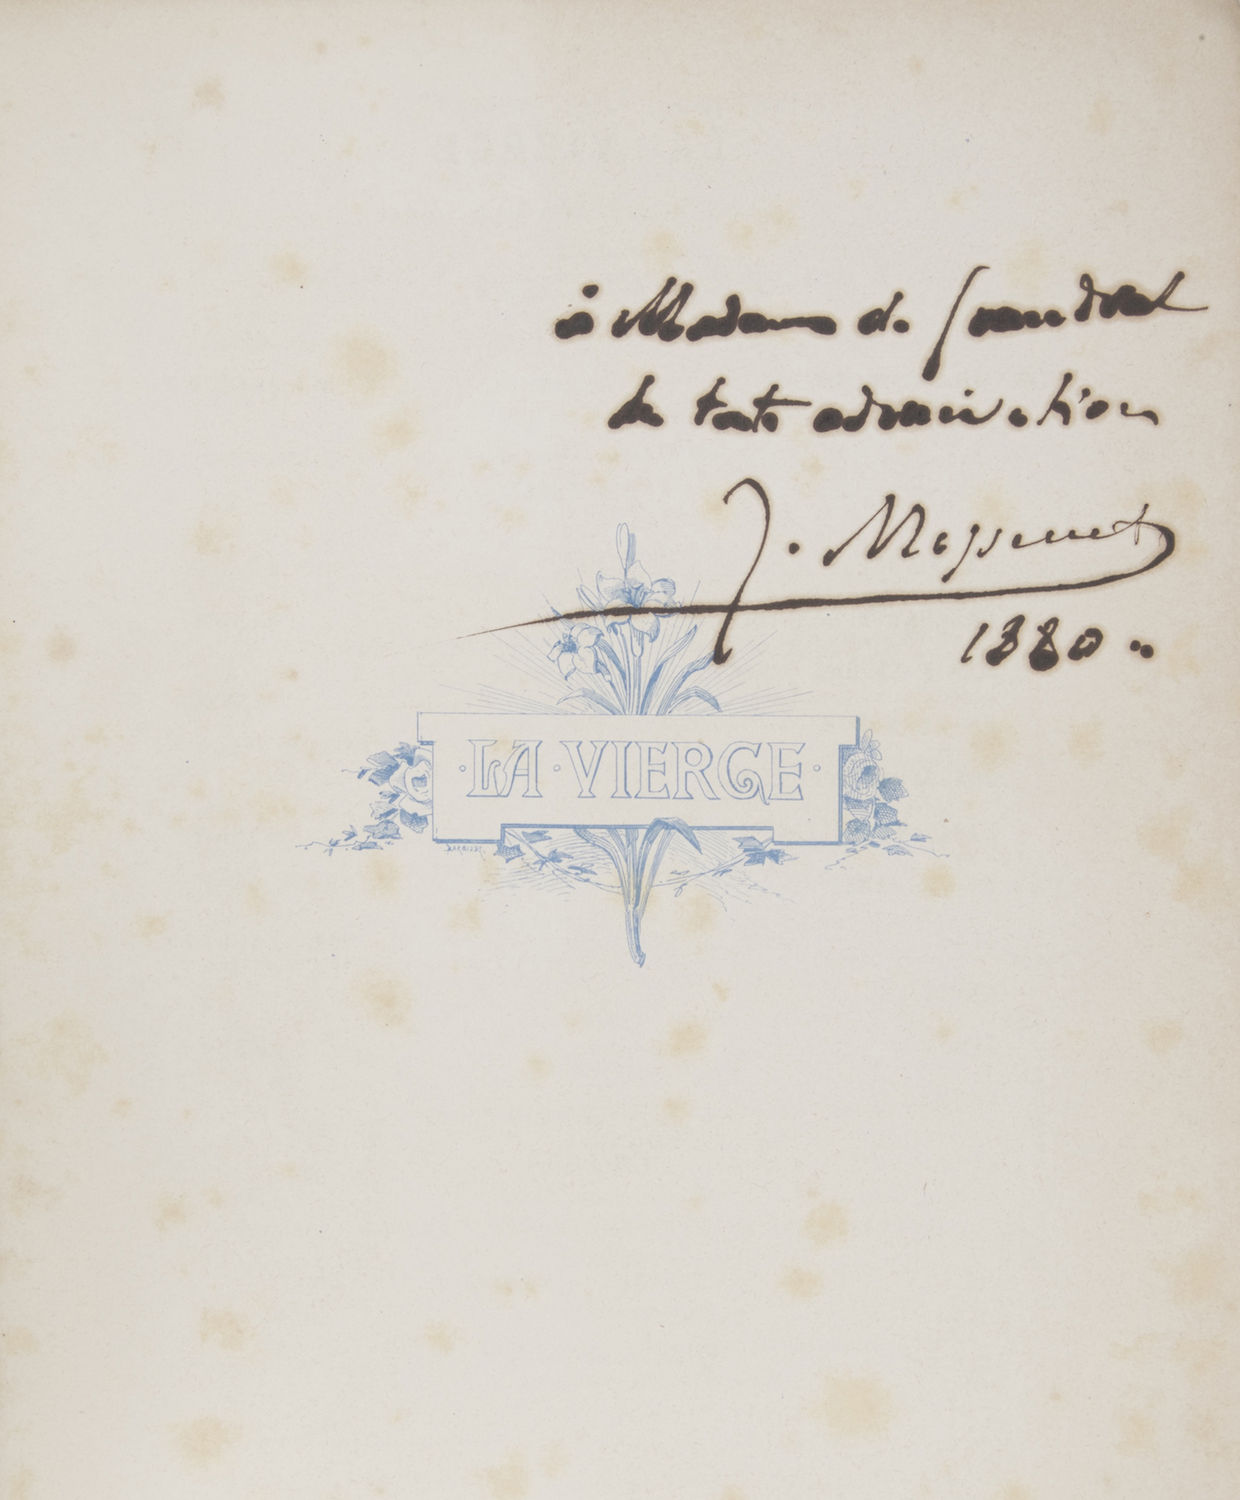 à Madame de Grandval
en toute admiration
J. Massenet
1880
· LA · VIERGE ·